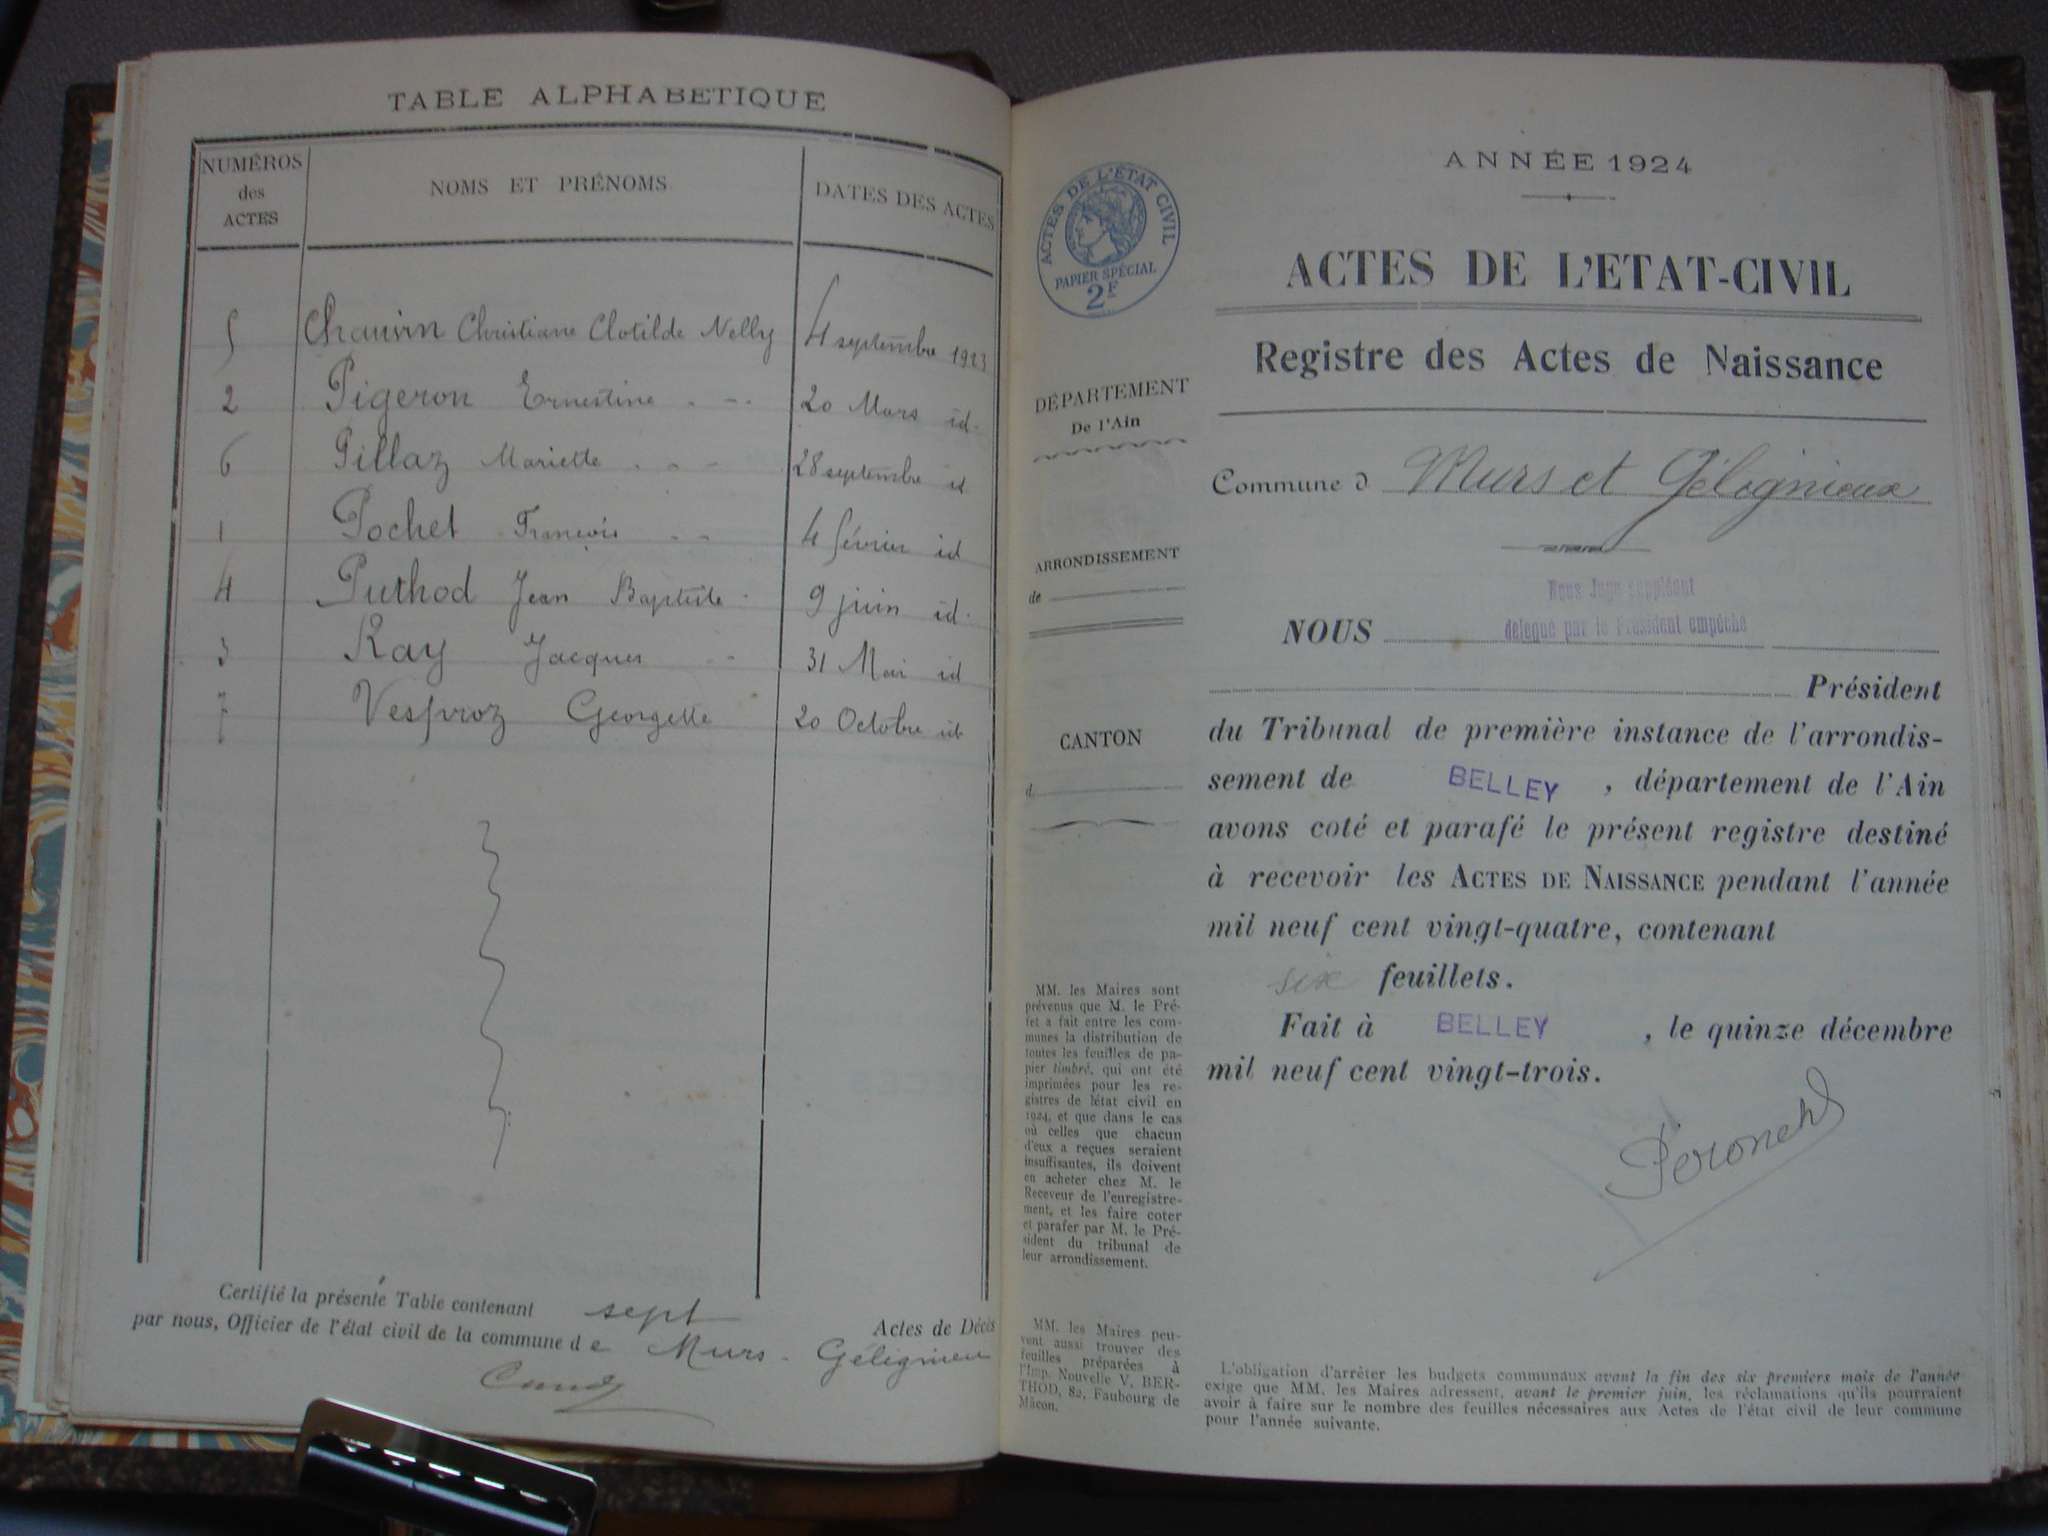 TABLE ALPHABETIQUE
NUMÉROS
des
ACTES
NOMS ET PRÉNOMS
DATES DES ACTES
5 Chauvin Christiane Clotilde Nelly 4 septembre 1923
2 Pigeron Ernestine 20 Mars id.
6 Pillaz Mariette 28 septembre id
1 Pochet François 4 février id
4 Puthod Jean Baptiste 9 juin id.
3 Ray Jacques 31 Mai id
7 Vesproz Georgette 20 Octobre id
Certifié la présente Table contenant sept Actes de Décès
par nous, Officier de l'état civil de la commune de Murs-Gélignieu
ANNÉE 1924
ACTES DE L'ÉTAT CIVIL
PAPIER SPÉCIAL
2F
ACTES DE L'ETAT-CIVIL
Registre des Actes de Naissance
DÉPARTEMENT
De l'Ain
Commune d Murs et Gélignieux
ARRONDISSEMENT
de
CANTON
d
Nous Juge suppléant
NOUS délégué par le Président empêché
Président
du Tribunal de première instance de l'arrondis-
sement de BELLEY , département de l'Ain
avons coté et parafé le présent registre destiné
à recevoir les ACTES DE NAISSANCE pendant l'année
mil neuf cent vingt-quatre, contenant
six feuillets.
Fait à BELLEY , le quinze décembre
mil neuf cent vingt-trois.
MM. les Maires sont
prévenus que M. le Pré-
fet a fait entre les com-
munes la distribution de
toutes les feuilles de pa-
pier timbré, qui ont été
imprimées pour les re-
gistres de l'état civil en
1924, et que dans le cas
où celles que chacun
d'eux a reçues seraient
insuffisantes, ils doivent
en acheter chez M. le
Receveur de l'enregistre-
ment, et les faire coter
et parafer par M. le Pré-
sident du tribunal de
leur arrondissement.
MM. les Maires peu-
vent aussi trouver des
feuilles préparées à
l'Imp. Nouvelle V. BER-
THOD, 82, Faubourg de
Mâcon.
L'obligation d'arrêter les budgets communaux avant la fin des six premiers mois de l'année
exige que MM. les Maires adressent, avant le premier juin, les réclamations qu'ils pourraient
avoir à faire sur le nombre des feuilles nécessaires aux Actes de l'état civil de leur commune
pour l'année suivante.